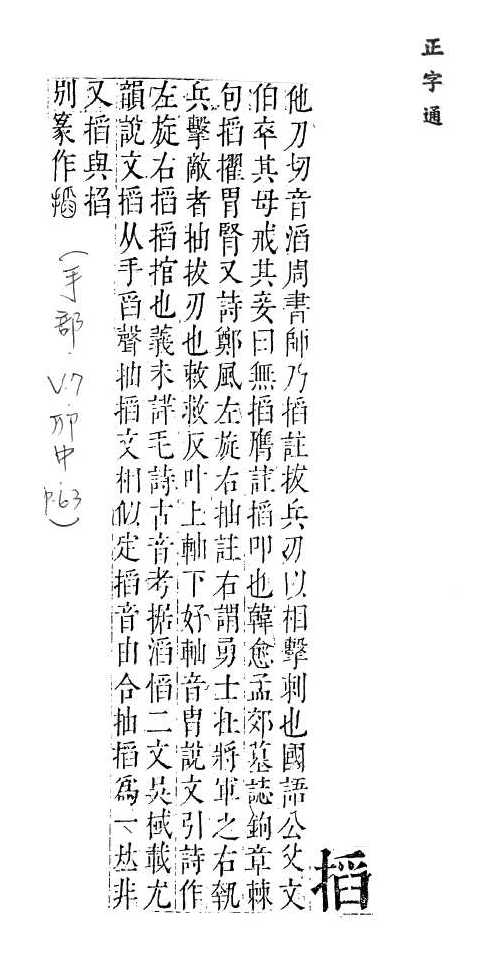 正字通
搯
他刀切音滔周書師乃搯註拔兵刃以相擊刺也國語公父文
伯卒其母戒其妾曰無搯膺註搯叩也韓愈孟郊墓誌鉤章棘
句搯擢胃腎又詩鄭風左旋右抽註右謂勇士在將軍之右執
兵擊敵者抽拔刃也敕救反叶上軸下好軸音胄說文引詩作
左旋右搯搯捾也義未詳毛詩古音考据滔慆二文吳棫載尤
韻說文搯从手舀聲抽搯文相似定搯音由合抽搯爲一𠀤非
又搯與掐
別篆作搯
(手部.V.7.卯中
p.63)